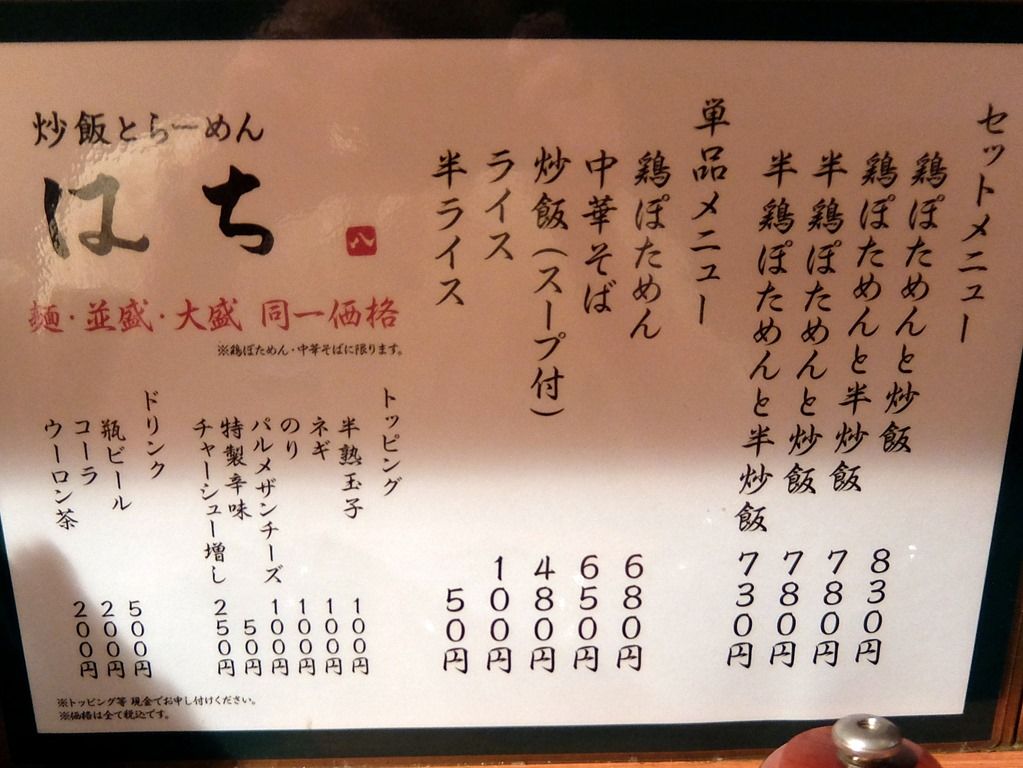 セットメニュー
鶏ぽためんと炒飯 830円
鶏ぽためんと半炒飯 780円
半鶏ぽためんと炒飯 780円
半鶏ぽためんと半炒飯 730円
単品メニュー
鶏ぽためん 680円
中華そば 650円
炒飯(スープ付) 480円
ライス 100円
半ライス 50円
炒飯とらーめん
はち
八
麺・並盛・大盛 同一価格
※鶏ぽためん・中華そばに限ります。
トッピング
半熟玉子 100円
ネギ 100円
のり 100円
パルメザンチーズ 100円
特製辛味 50円
チャーシュー増し 250円
ドリンク
瓶ビール 500円
コーラ 200円
ウーロン茶 200円
※トッピング等 現金でお申し付けください。
※価格は全て税込です。